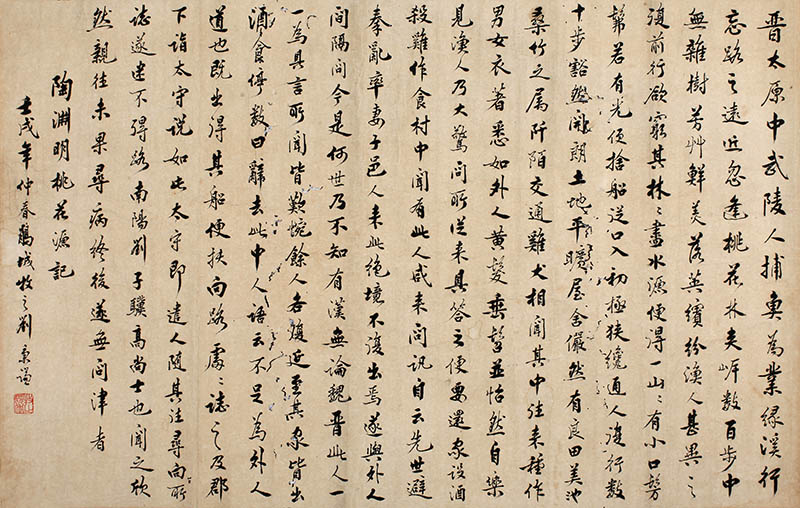 晋太原中武陵人捕魚為業緣溪行
忘路之遠近忽逢桃花林夾岸数百步中
無雜樹芳艸鮮美落英繽紛漁人甚異之
復前行欲窮其林々盡水源便得一山々有小口髣
髴若有光便捨船從口入初極狹纔通人復行数
十步豁然開朗土地平曠屋舍儼然有良田美池
桑竹之属阡陌交通雞犬相聞其中往来種作
男女衣著悉如外人黄髮垂髫並怡然自樂
見漁人乃大驚問所從来具答之便要還家設酒
殺雞作食村中聞有此人咸来問訊自云先世避
秦亂率妻子邑人来此絶境不復出焉遂與外人
間隔問今是何世乃不知有漢無論魏晋此人一
一為具言所聞皆歎惋餘人各復延至其家皆出
酒食停数日辭去此中人語云不足為外人
道也既出得其船便扶向路處々誌之及郡
下詣太守説如此太守即遣人隨其往尋向所
誌遂迷不得路南陽劉子驥高尚士也聞之欣
然親往未果尋病終後遂無問津者
陶淵明桃花源記
壬戌年仲春城牧之劉